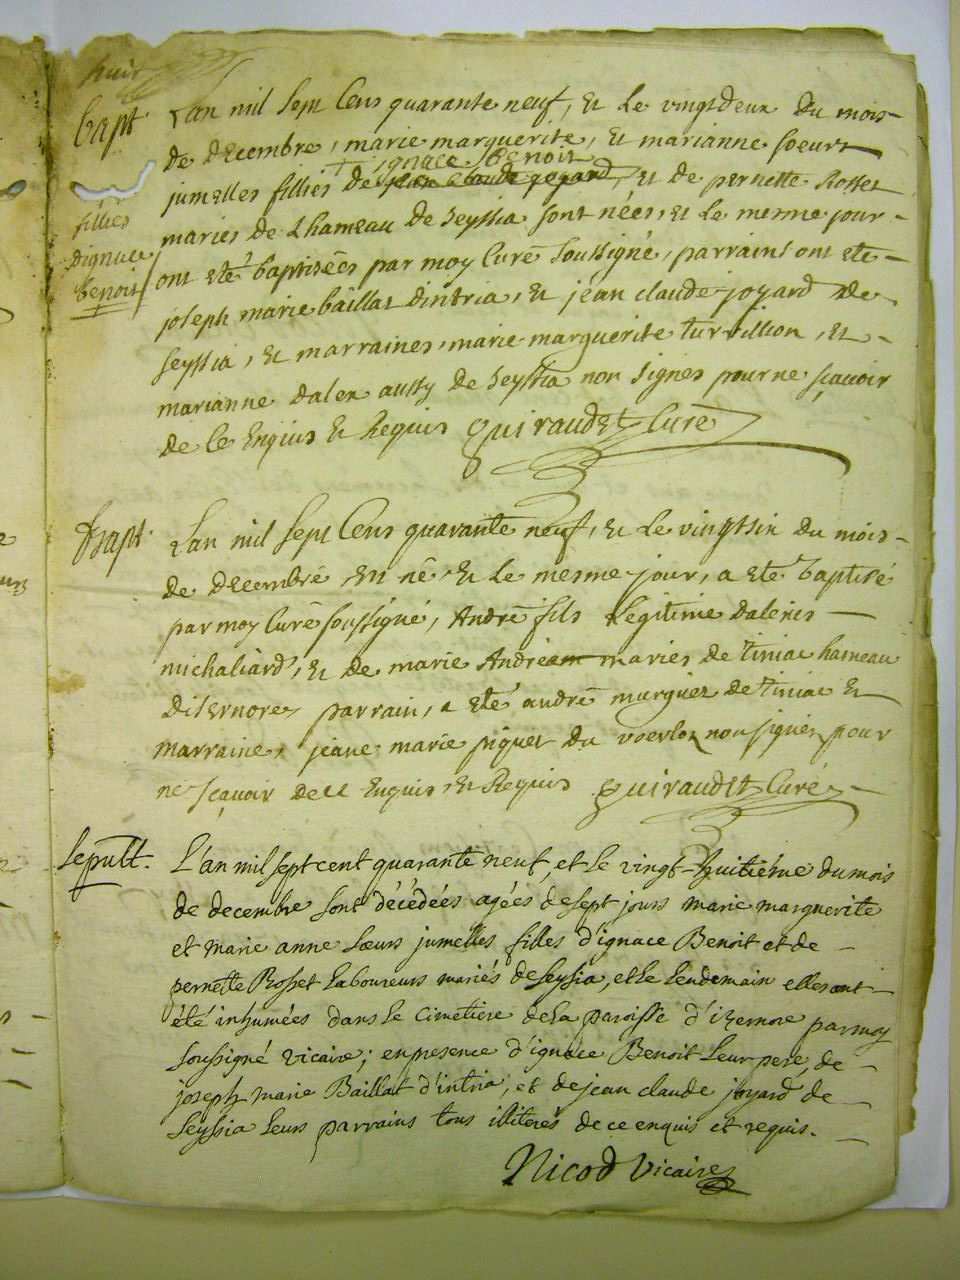 huit
Bapt.
fillies
dignace
benoit
Lan mil sept Cens quarante neuf, et Le vingtdeux du mois
de decembre, marie marguerite, et marianne soeurs
ignace Benoit
jumelles fillies de jean claude joyard, et de pernette Rosset
maries de Lhameau de Seyssia sont nées, et le mesme jour
ont eté baptisées par moy Curé soussigné, parrains ont ete
joseph marie baillat dintria, et jean claude joyard de
seyssia, et marraines, marie marguerite turvillion, et
marianne dalex aussy de seyssia non signes pour ne sçavoir
de ce Enquis et Requis Guiraudet Curé
Bapt.
Lan mil sept Cens quarante neuf, et Le vingtsix du mois
de decembre est né et le mesme jour, a eté baptisé
par moy Curé soussigné, André fils Legitime dalexis
michaliard, et de marie Andrean maries de tiniac hameau
disernore, parrain, a eté andré murguez de tiniac et
marraine, jeane marie piquet du voerlex non signez pour
ne sçavoir de ce Enquis, et Requis Guiraudet Curé
Sepult.
L'an mil sept cent quarante neuf, et le vingt-huitieme du mois
de decembre sont décédées agées de sept jours marie marguerite
et marie anne sœurs jumelles filles d'ignace Benoit et de
pernette Rosset Laboureurs mariés de seysia, et le Lendemain elles ont
été inhumées dans le cimetiere de la paroisse d'izernore par moy
soussigné vicaire; en presence d'ignace Benoit Leur pere, de
joseph marie Baillat d'intria, et de jean claude joyard de
seyssia Leurs parrains tous illiterés de ce enquis et requis.
Nicod vicaire